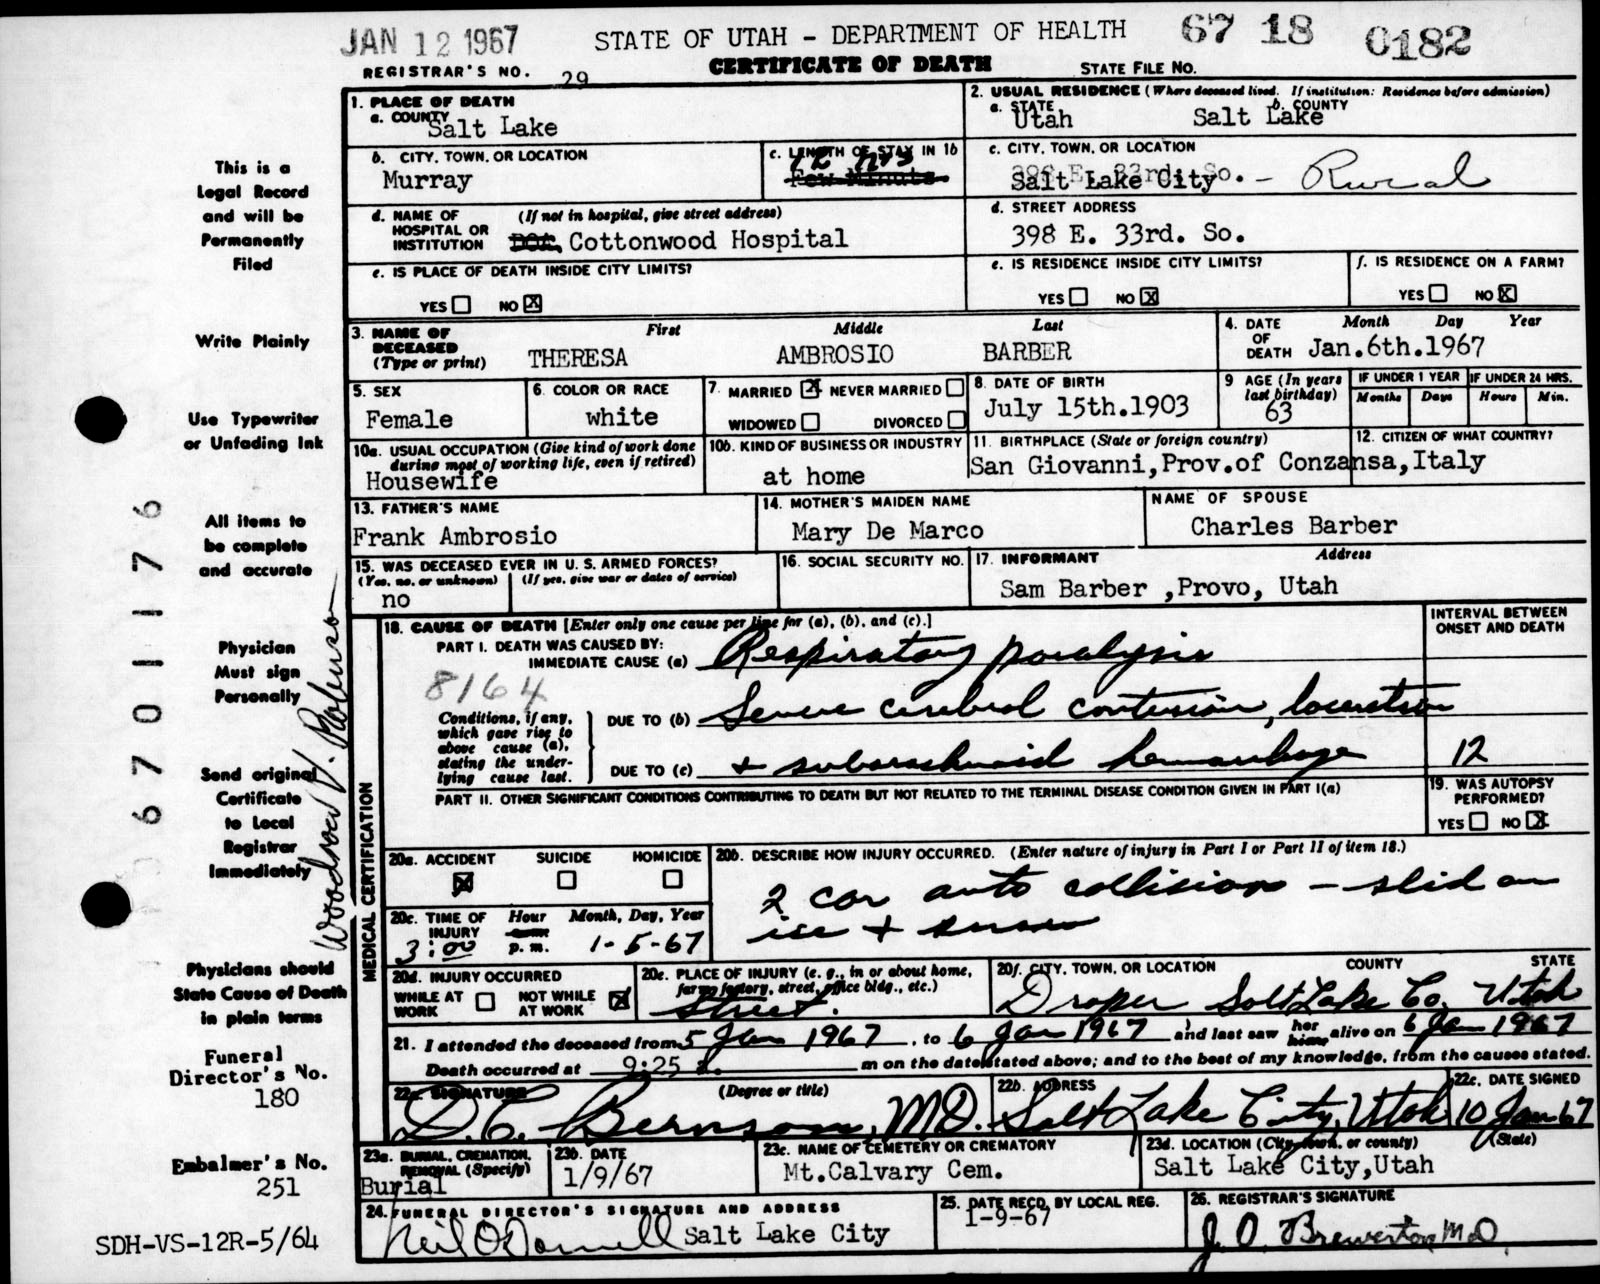 JAN 12 1967
STATE OF UTAH - DEPARTMENT OF HEALTH
67 18 0182
REGISTRAR'S NO. 29
CERTIFICATE OF DEATH
STATE FILE NO.
1. PLACE OF DEATH
a. COUNTY
Salt Lake
2. USUAL RESIDENCE (Where deceased lived. If institution: Residence before admission)
a. STATE
Utah
b. COUNTY
Salt Lake
b. CITY, TOWN, OR LOCATION
Murray
c. LENGTH OF STAY IN 1b
12 hrs
Few Minuts
c. CITY, TOWN, OR LOCATION
398 E. 33rd. So.
Salt Lake City - Rural
d. NAME OF HOSPITAL OR INSTITUTION
(If not in hospital, give street address)
DOA, Cottonwood Hospital
d. STREET ADDRESS
398 E. 33rd. So.
e. IS PLACE OF DEATH INSIDE CITY LIMITS?
YES NO X
e. IS RESIDENCE INSIDE CITY LIMITS?
YES NO X
f. IS RESIDENCE ON A FARM?
YES NO X
3. NAME OF DECEASED (Type or print)
First Middle Last
THERESA AMBROSIO BARBER
4. DATE OF DEATH
Month Day Year
Jan.6th.1967
5. SEX
Female
6. COLOR OR RACE
white
7. MARRIED X NEVER MARRIED
WIDOWED DIVORCED
8. DATE OF BIRTH
July 15th.1903
9 AGE (In years last birthday)
63
IF UNDER 1 YEAR
Months Days
IF UNDER 24 HRS.
Hours Min.
10a. USUAL OCCUPATION (Give kind of work done during most of working life, even if retired)
Housewife
10b. KIND OF BUSINESS OR INDUSTRY
at home
11. BIRTHPLACE (State or foreign country)
San Giovanni,Prov.of Conzansa,Italy
12. CITIZEN OF WHAT COUNTRY?
13. FATHER'S NAME
Frank Ambrosio
14. MOTHER'S MAIDEN NAME
Mary De Marco
NAME OF SPOUSE
Charles Barber
15. WAS DECEASED EVER IN U. S. ARMED FORCES?
(Yes, no, or unknown) (If yes, give war or dates of service)
no
16. SOCIAL SECURITY NO.
17. INFORMANT Address
Sam Barber ,Provo, Utah
MEDICAL CERTIFICATION
18. CAUSE OF DEATH [Enter only one cause per line for (a), (b), and (c).]
INTERVAL BETWEEN ONSET AND DEATH
PART I. DEATH WAS CAUSED BY:
IMMEDIATE CAUSE (a) Respiratory paralysis
8164
Conditions, if any, which gave rise to above cause (a), stating the underlying cause last.
DUE TO (b) Severe cerebral contusion, laceration
DUE TO (c) + subarachnoid hemorrhage
12
PART II. OTHER SIGNIFICANT CONDITIONS CONTRIBUTING TO DEATH BUT NOT RELATED TO THE TERMINAL DISEASE CONDITION GIVEN IN PART I(a)
19. WAS AUTOPSY PERFORMED?
YES NO X
20a. ACCIDENT SUICIDE HOMICIDE
X
20b. DESCRIBE HOW INJURY OCCURRED. (Enter nature of injury in Part I or Part II of item 18.)
2 car auto collision - slid on
ice + snow
20c. TIME OF INJURY
Hour Month, Day, Year
3:00 p. m. 1-5-67
20d. INJURY OCCURRED
WHILE AT WORK NOT WHILE AT WORK X
20e. PLACE OF INJURY (e. g., in or about home, farm, factory, street, office bldg., etc.)
Street.
20f. CITY, TOWN, OR LOCATION COUNTY STATE
Draper Salt Lake Co. Utah
21. I attended the deceased from 5 Jan 1967, to 6 Jan 1967 and last saw her him alive on 6 Jan 1967
Death occurred at 9:25 a. m on the date stated above; and to the best of my knowledge, from the causes stated.
22a. SIGNATURE (Degree or title)
D.C. Bernson, MD.
22b. ADDRESS
Salt Lake City, Utah
22c. DATE SIGNED
10 Jan 67
23a. BURIAL, CREMATION, REMOVAL (Specify)
Burial
23b. DATE
1/9/67
23c. NAME OF CEMETERY OR CREMATORY
Mt.Calvary Cem.
23d. LOCATION (City, town, or county) (State)
Salt Lake City,Utah
24. FUNERAL DIRECTOR'S SIGNATURE AND ADDRESS
Neil O'Donnell Salt Lake City
25. DATE RECD. BY LOCAL REG.
1-9-67
26. REGISTRAR'S SIGNATURE
J. O. Brewerton M.D.
This is a
Legal Record
and will be
Permanently
Filed
Write Plainly
Use Typewriter
or Unfading Ink
All items to
be complete
and accurate
Physician
Must sign
Personally
Send original
Certificate
to Local
Registrar
Immediately
Physicians should
State Cause of Death
in plain terms
Funeral
Director's No.
180
Embalmer's No.
251
SDH-VS-12R-5/64
67011176